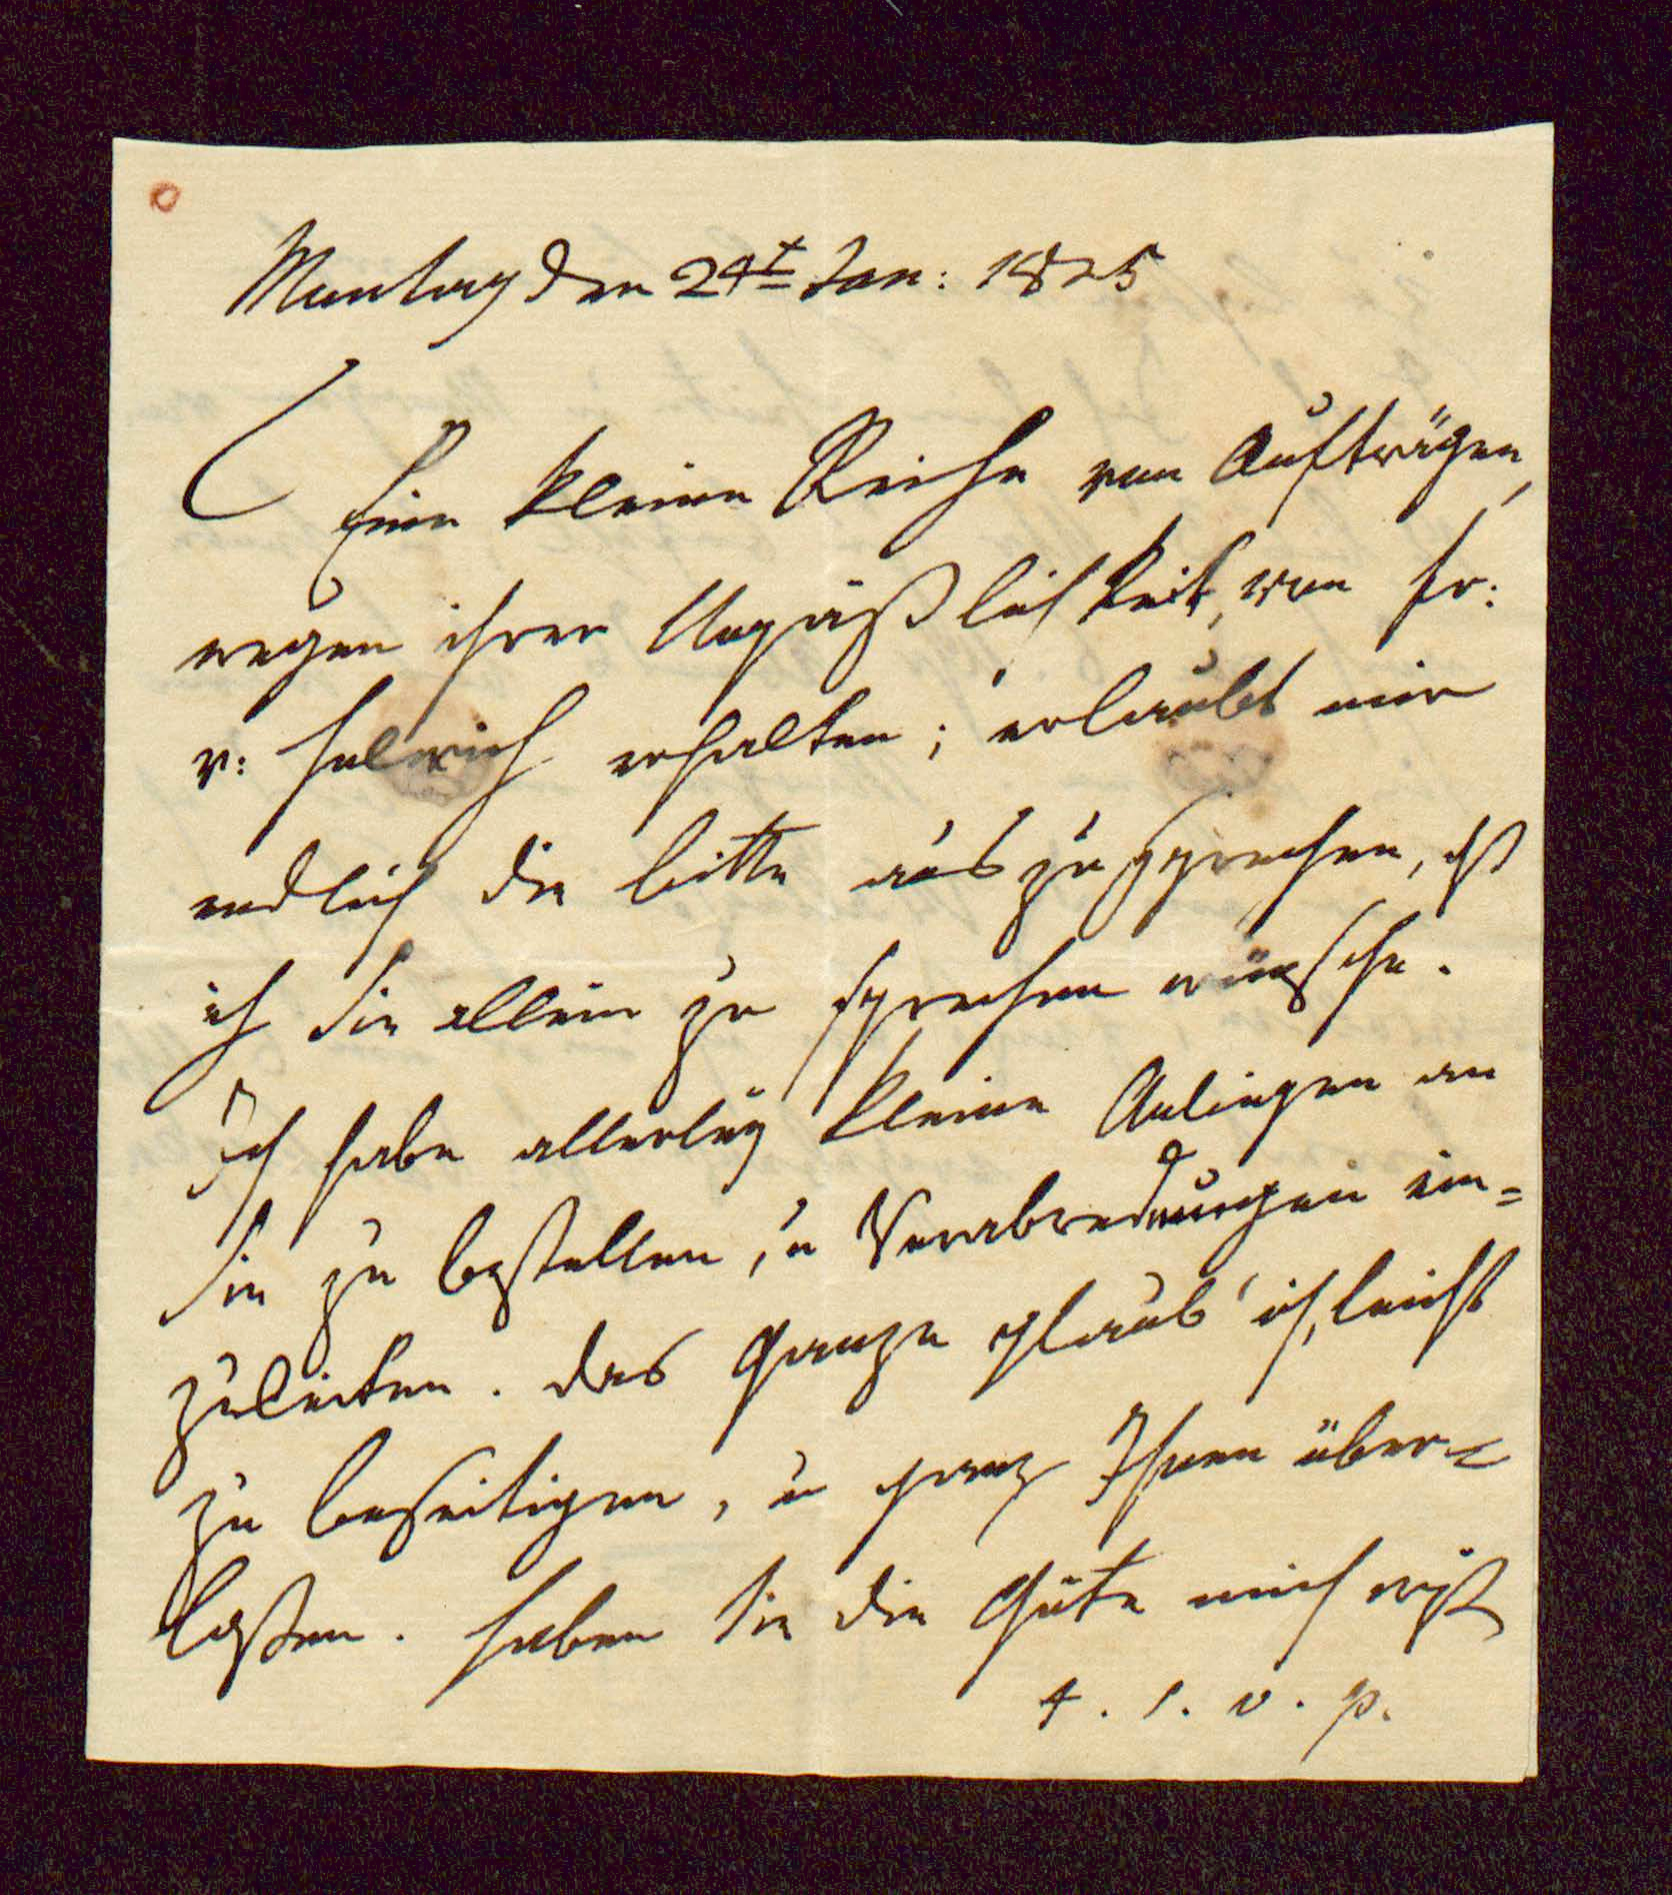 Montag den 24t Jan: 1825
Eine kleine Reihe von Aufträgen,
wegen ihrer Unpäßlichkeit, von Fr:
v: Helvich erhalten; erlaubt mir
endlich die bitte auszusprechen, dß
ich Sie allein zu sprechen wünsche.
Ich habe allerley kleine Anliegen an
Sie zu bestellen, u Verabredungen ein=
zuleiten. das Ganze glaub' ich, leicht
zu beseitigen, u ganz Ihnen über=
laßen. haben Sie die Güte mich
t. s. v. p.